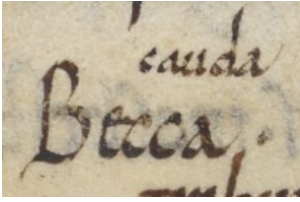 cauda
Becca.